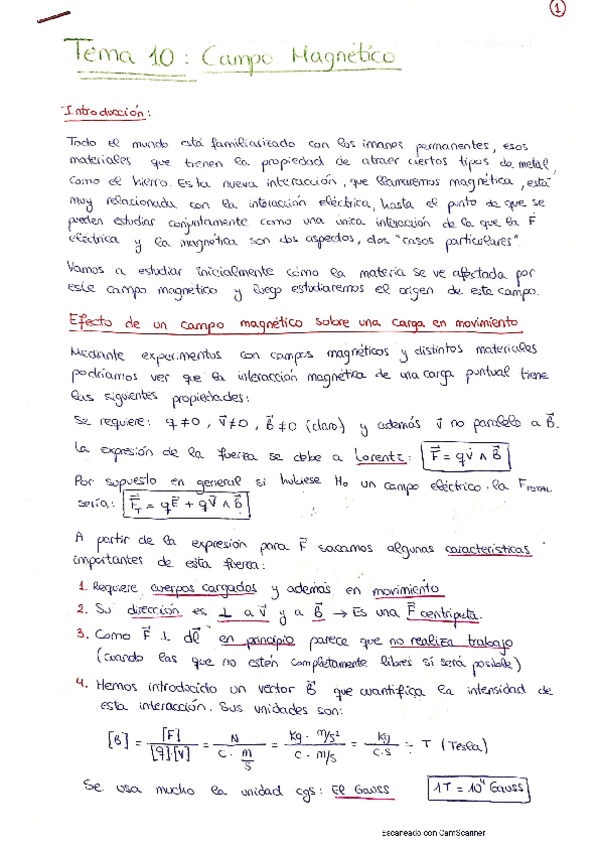 1
Tema 10: Campo Magnético
Introducción:
Todo el mundo está familiarizado con los imanes permanentes, esos
materiales que tienen la propiedad de atraer ciertos tipos de metal,
como el hierro. Esta nueva interacción, que llamaremos magnética, está
muy relacionada con la interacción eléctrica, hasta el punto de que se
pueden estudiar conjuntamente como una única interacción de la que la F
eléctrica y la magnética son dos aspectos, dos "casos particulares".
Vamos a estudiar inicialmente cómo la materia se ve afectada por
este campo magnético y luego estudiaremos el origen de este campo.
Efecto de un campo magnético sobre una carga en movimiento
Mediante experimentos con campos magnéticos y distintos materiales
podríamos ver que la interacción magnética de una carga puntual tiene
las siguientes propiedades:
Se requiere: q≠0, v⃗≠0, B⃗≠0 (claro) y además v⃗ no paralelo a B⃗.
La expresión de la fuerza se debe a Lorentz: F⃗ = qv⃗ ∧ B⃗
Por supuesto en general si hubiese un campo eléctrico la F TOTAL
sería: F⃗T = qE⃗ + qv⃗ ∧ B⃗
A partir de la expresión para F⃗ sacamos algunas características
importantes de esta fuerza:
1. Requiere cuerpos cargados y además en movimiento
2. Su dirección es ⊥ a v⃗ y a B⃗ → Es una F⃗ centrípeta.
3. Como F⃗ ⊥ dl⃗ en principio parece que no realiza trabajo
(cuando las que no estén completamente libres sí será posible)
4. Hemos introducido un vector B⃗ que cuantifica la intensidad de
esta interacción. Sus unidades son:
[B] = [F]/[q]·[v] = N/(C · m/s) = (Kg · m/s²)/(C · m/s) = Kg/(C·s) ÷ T (Tesla)
Se usa mucho la unidad cgs: El Gauss 1T = 10⁴ Gauss
Escaneado con CamScanner